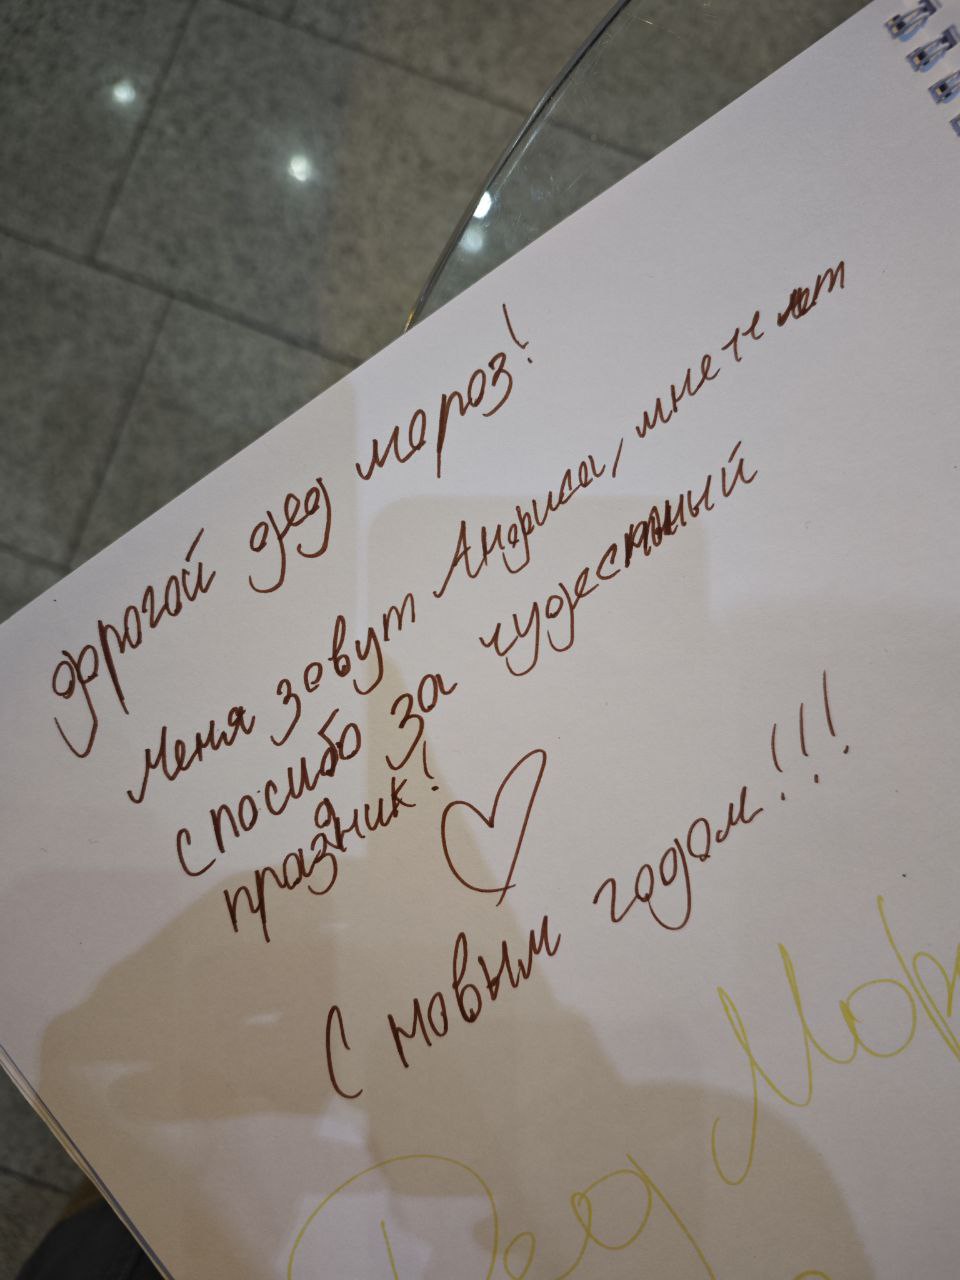 дорогой дед мороз!
Меня зовут Андриса, мне 11 лет
спосибо за чудестный
праздник!
С новым годом!!!
Дед Мор